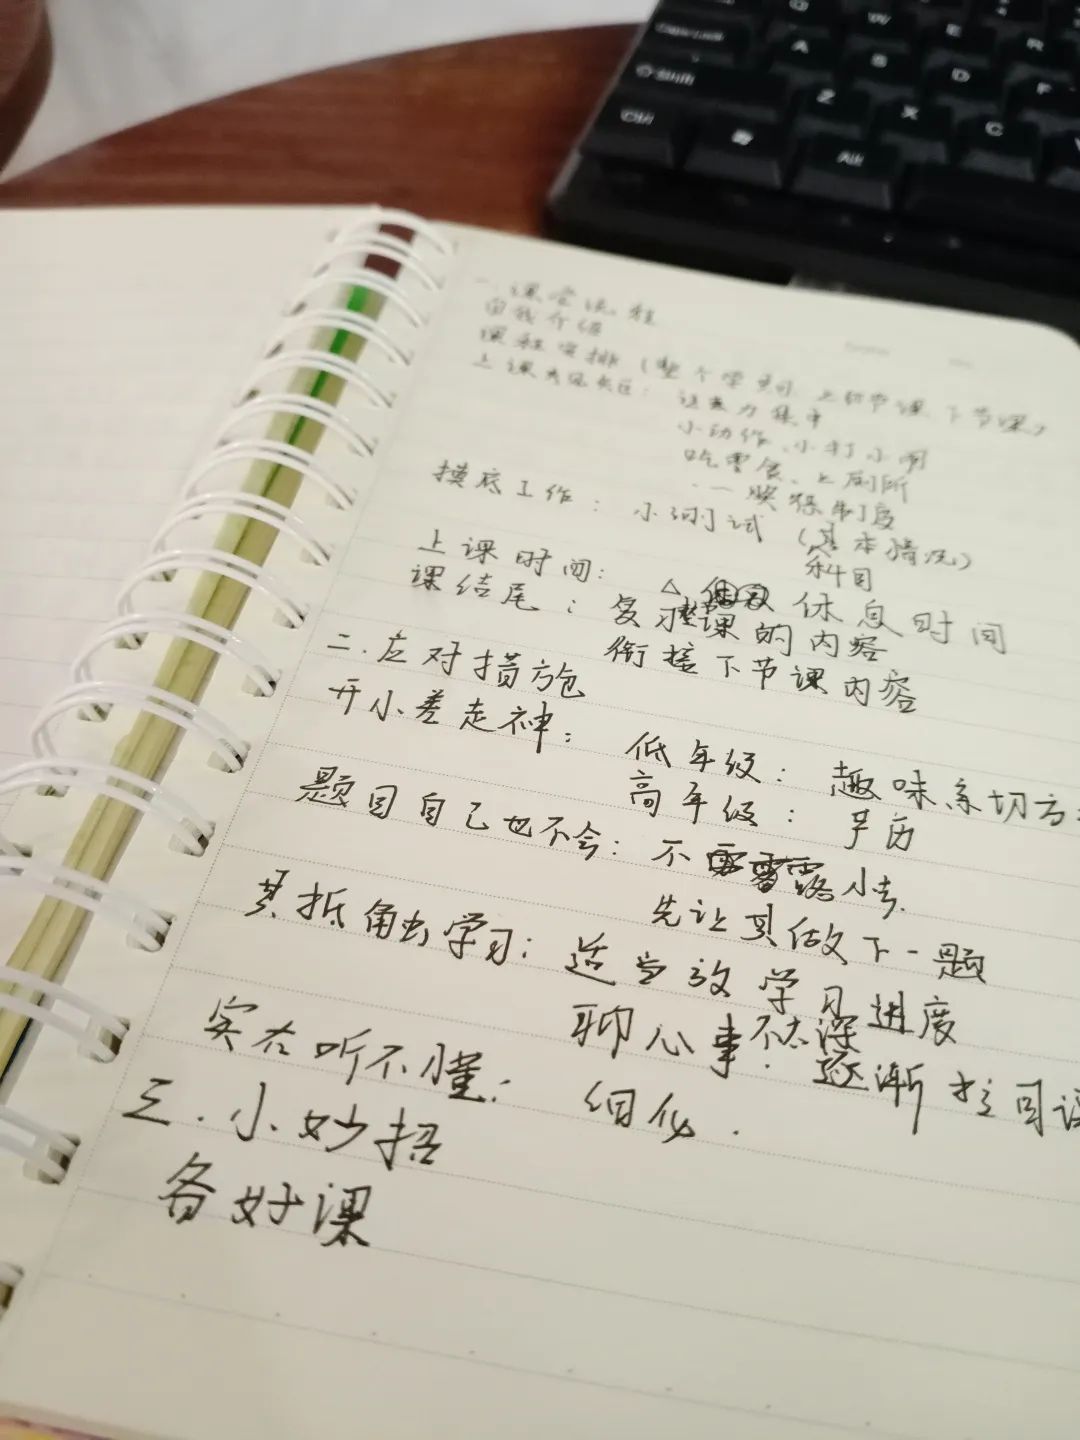 一.课堂流程
自我介绍
课程安排(整个学期 上节课 下节课)
上课 : 注意力集中
小动作、小打小闹
吃零食、上厕所
奖惩制度
摸底工作: 小测试 (基本情况)
科目
上课时间: △ 休息时间
课结尾: 复习整课的内容
衔接下节课内容
二.应对措施
开小差走神: 低年级: 趣味亲切
高年级: 严厉
题目自己也不会: 不露
先让其做下一题
其抵触学习: 适当放学习进度
聊心事不太深. 逐渐拉回
实在听不懂: 细化.
三.小妙招
备好课
Q W E R
Caps Lock A S D F
Shift Z X C
Ctrl Alt